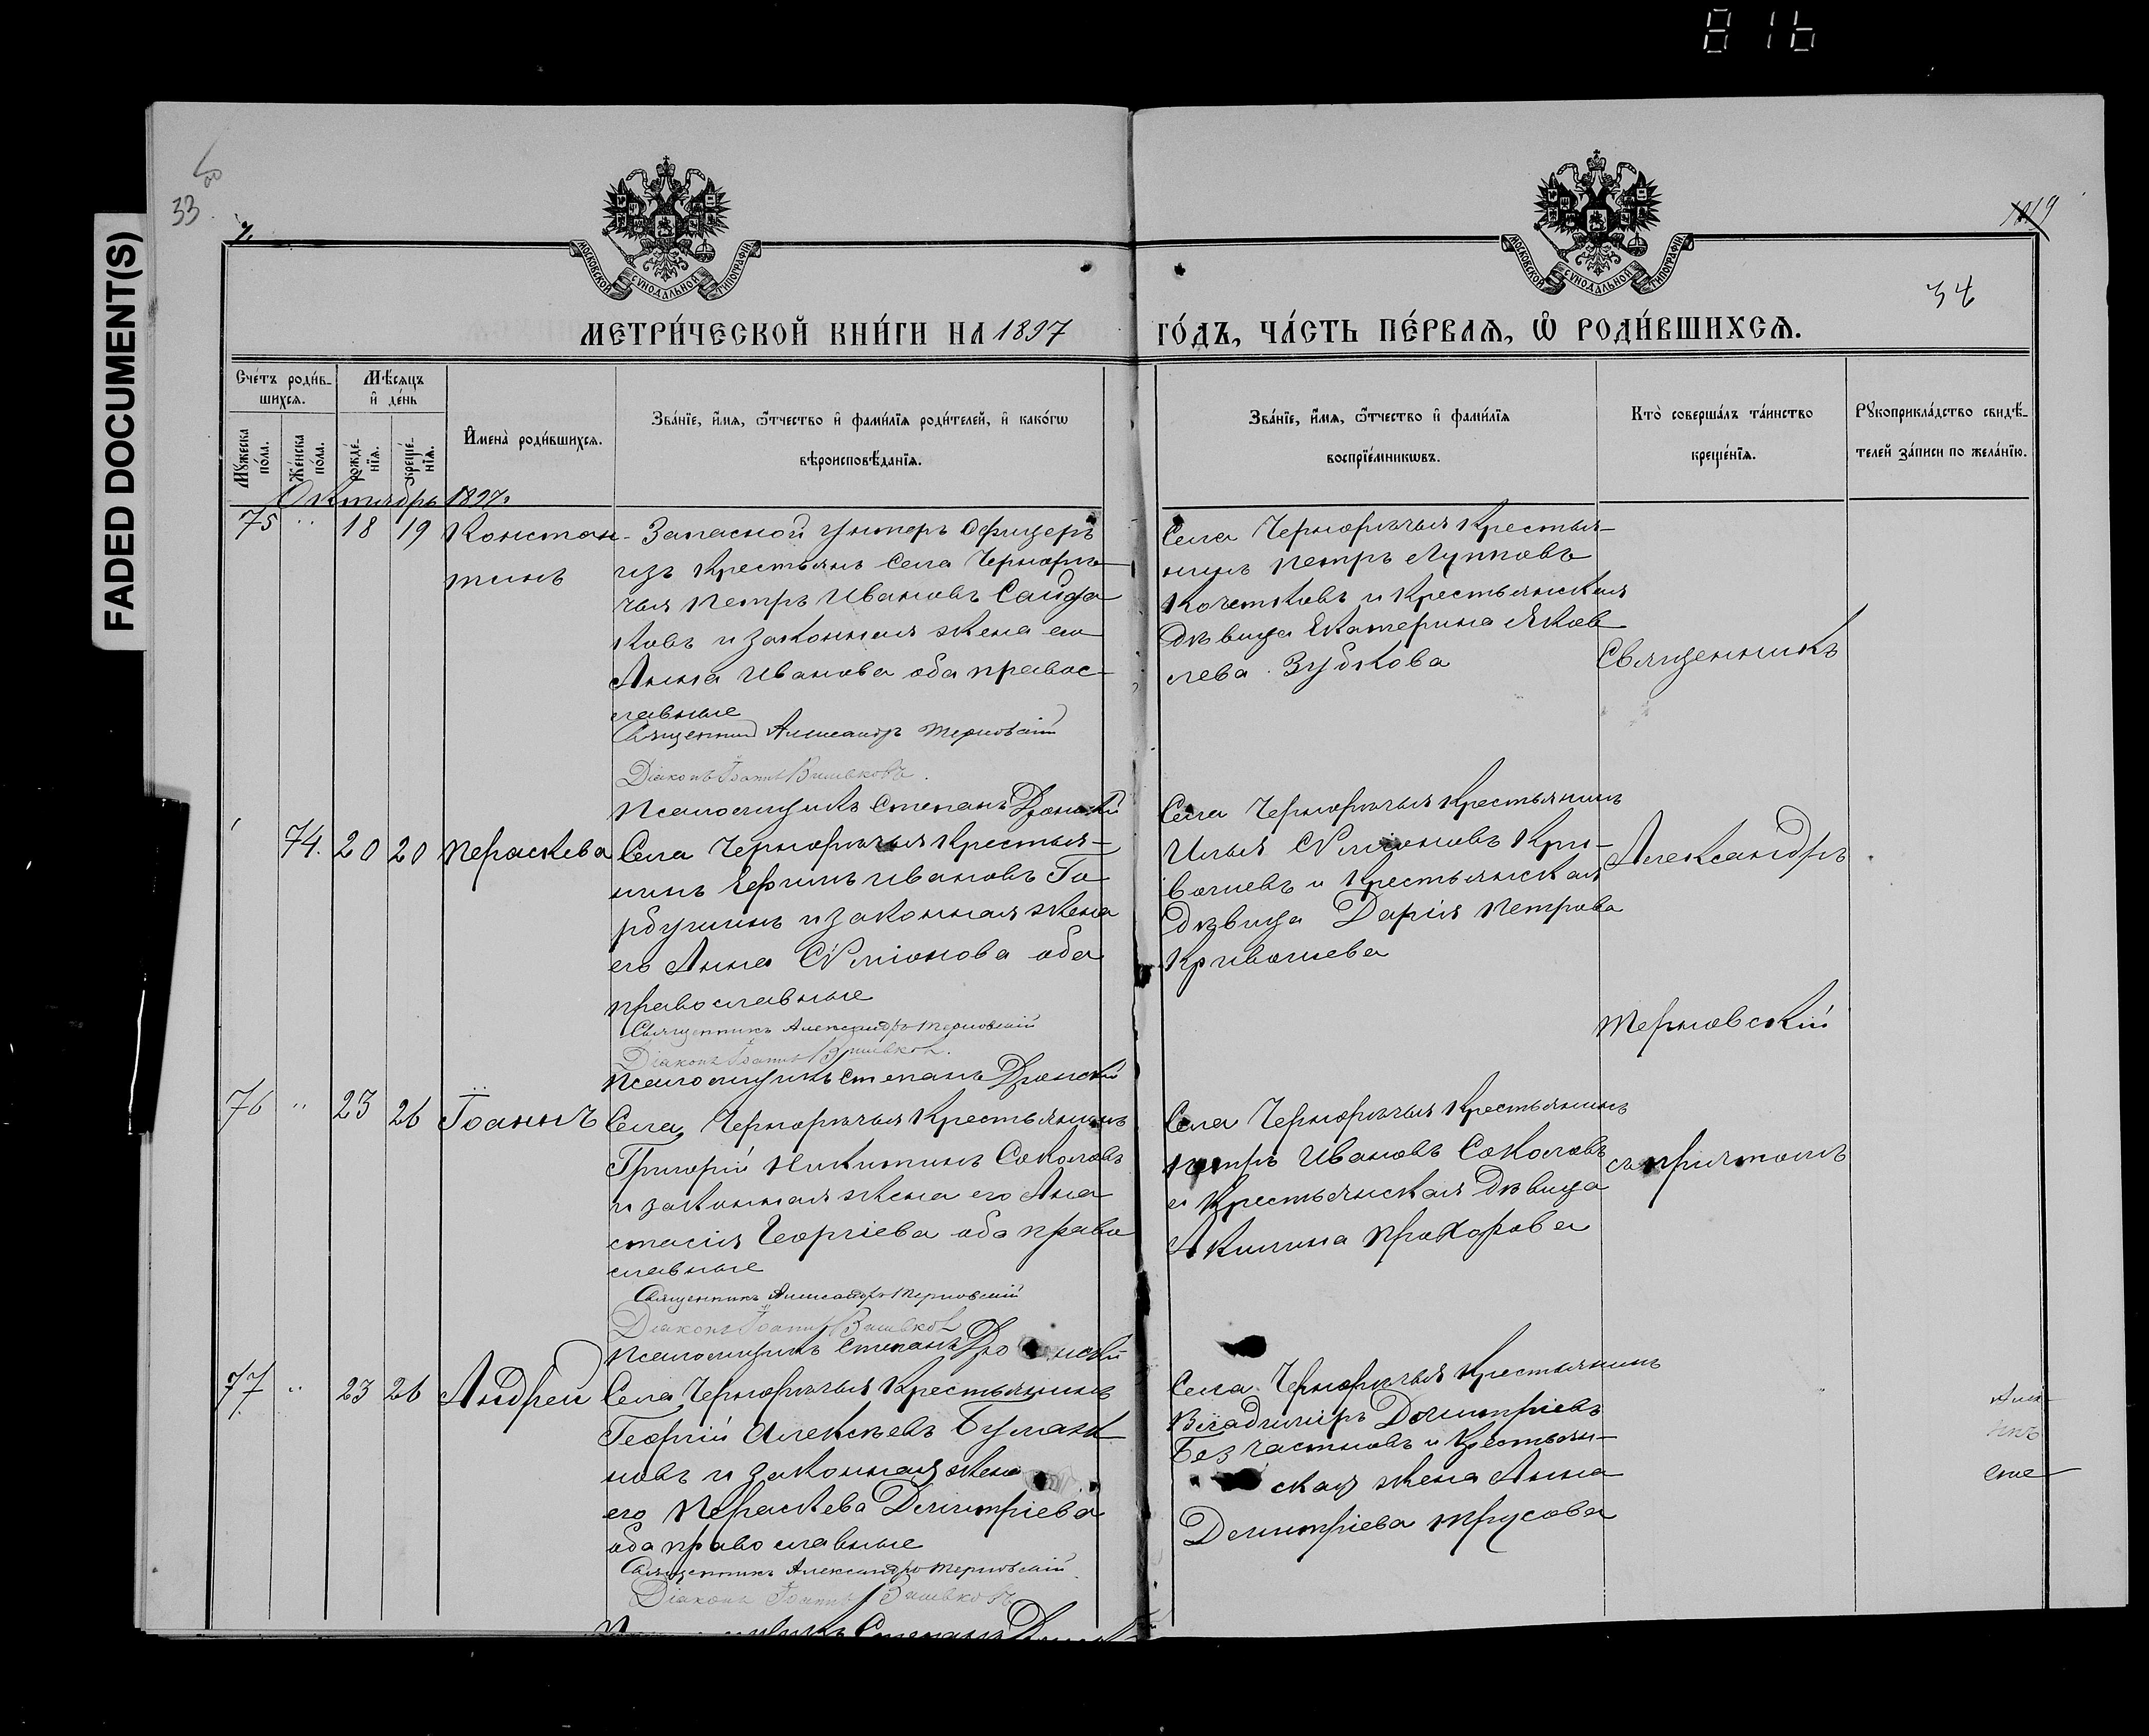 816
FADED DOCUMENT(S)
33
34
МОСКОВСКОЙ СѴНОДАЛЬНОЙ ТИПОГРАФІИ
МОСКОВСКОЙ СѴНОДАЛЬНОЙ ТИПОГРАФІИ
МЕТРИ́ЧЕСКОЙ КНИ́ГИ НА 1897 ГО́ДЪ, ЧА́СТЬ ПЕ́РВАѦ, Ѡ҆ РОДИ́ВШИХСѦ.
Сче́тъ роди́в-
шихсѧ.
Мꙋ́жеска по́ла.
Же́нска по́ла.
Мѣ́сѧцъ
и҆ де́нь
Рожде́-нїѧ.
Креще́-нїѧ.
И҆мена̀ роди́вшихсѧ.
Зва́нїе, и҆́мѧ, ѻ҆́тчество и҆ фами́лїѧ роди́телей, и҆ како́гѡ
вѣроисповѣ́данїѧ.
Зва́нїе, и҆́мѧ, ѻ҆́тчество и҆ фами́лїѧ
воспрїе́мникѡвъ.
Кто̀ соверша́лъ та́инство
креще́нїѧ.
Рꙋкоприкла́дство свидѣ́-
телей за́писи по жела́нїю.
Октябрь 1897.
75 " 18 19 Констан-
тинъ
Запасной унтеръ офицеръ
изъ крестьянъ села Чернорѣ-
чья Петръ Ивановъ Сайда
ковъ и законная жена его
Анна Иванова оба правос-
лавные
Священникъ Александръ Терновскій
Діаконъ Іоаннъ
Псаломщикъ Степанъ
Села Чернорѣчья крестья-
нинъ Петръ Лупповъ
Кочетковъ и крестьянская
дѣвица Екатерина Яков
лева Зубкова
Священникъ
74. 20 20 Параскева
Села Чернорѣчья крестья-
нинъ Ефимъ Ивановъ Го
рбушинъ и законная жена
его Анна Сѵміонова оба
православные
Священникъ Александръ Терновскій
Діаконъ Іоаннъ
Псаломщикъ Степанъ
Села Чернорѣчья крестьянинъ
Илья Сѵміоновъ Кри-
вошеевъ и крестьянская
дѣвица Дарія Петрова
Кривошеева
Александръ
Терновскій
76 " 23 26 Іоаннъ
Села Чернорѣчья крестьянинъ
Григорій Никитинъ Соколовъ
и законная жена его Ана
стасія Георгіева оба право
славные
Священникъ Александръ Терновскій
Діаконъ Іоаннъ
Псаломщикъ Степанъ
Села Чернорѣчья крестьянинъ
Петръ Ивановъ Соколовъ
и крестьянская дѣвица
Акилина Прохорова
съ причтомъ
77 " 23 26 Андрей
Села Чернорѣчья крестьянинъ
Георгій Алексѣевъ
новъ и законная жена
его Параскева Димитріева
оба православные
Священникъ Александръ Терновскій
Діаконъ Іоаннъ
Псаломщикъ Степанъ
Села Чернорѣчья крестьянинъ
Владиміръ Димитріевъ
Безчастновъ и крестьян-
ская жена Анна
Димитріева Трусова